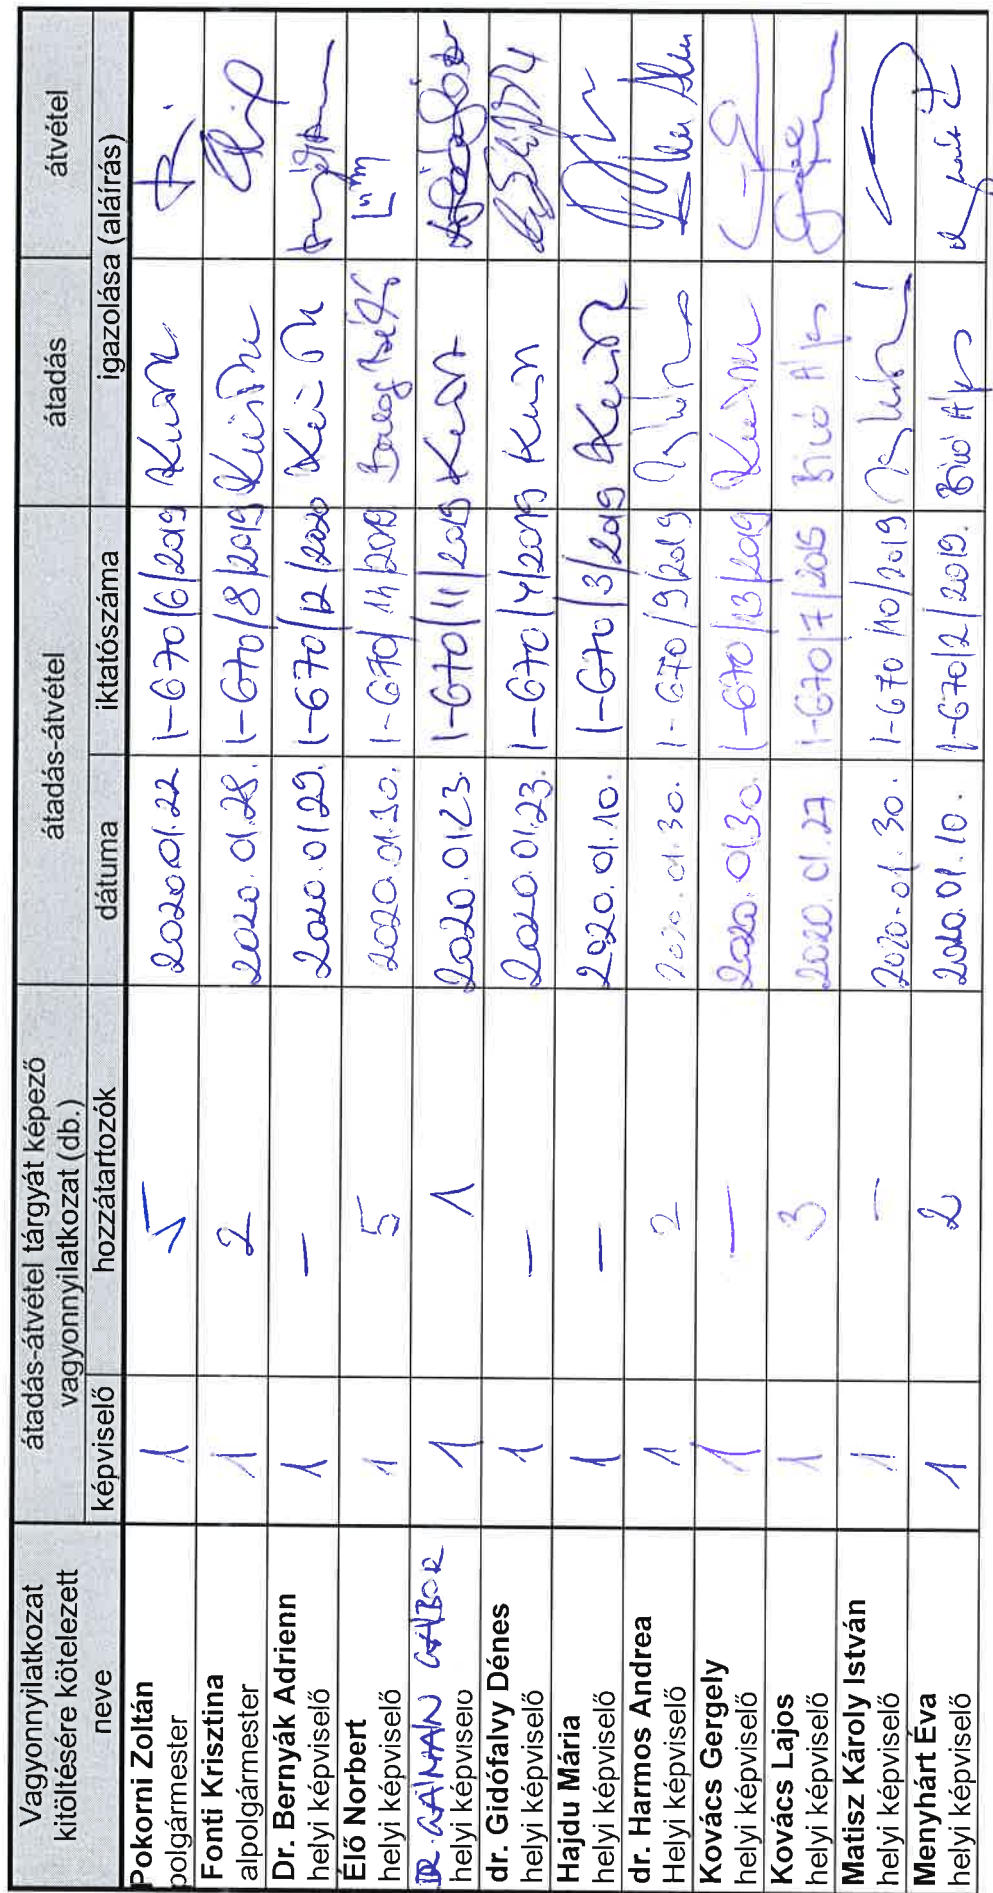 Vagyonnyilatkozat
kitöltésére kötelezett
neve
átadás-átvétel tárgyát képező
vagyonnyilatkozat (db.)
átadás-átvétel
átadás
átvétel
képviselő
hozzátartozók
dátuma
iktatószáma
igazolása (aláírás)
Pokorni Zoltán
polgármester
1
5
2020.01.22
1-670/6/2019
Fonti Krisztina
alpolgármester
1
2
2020.01.28.
1-670/8/2019
Dr. Bernyák Adrienn
helyi képviselő
1
–
2020.01.29.
1-670/12/2020
Élő Norbert
helyi képviselő
1
5
2020.01.30.
1-670/14/2019
DR. GÁLMÁN GÁBOR
helyi képviselő
1
1
2020.01.23.
1-670/11/2019
dr. Gidófalvy Dénes
helyi képviselő
1
–
2020.01.23.
1-670/4/2019
Hajdu Mária
helyi képviselő
1
–
2020.01.10.
1-670/3/2019
dr. Harmos Andrea
Helyi képviselő
1
2
2020.01.30.
1-670/9/2019
Kovács Gergely
helyi képviselő
1
–
2020.01.30.
1-670/13/2019
Kovács Lajos
helyi képviselő
1
3
2020.01.27
1-670/7/2015
Bíró
Matisz Károly István
helyi képviselő
1
–
2020.01.30.
1-670/10/2019
Menyhárt Éva
helyi képviselő
1
2
2020.01.10.
1-670/2/2019.
Bíró